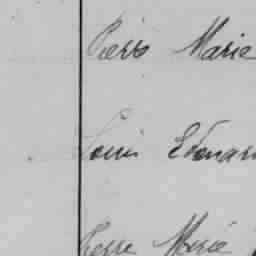 Pierre Marie
Louis Edouar
Pierre Marie